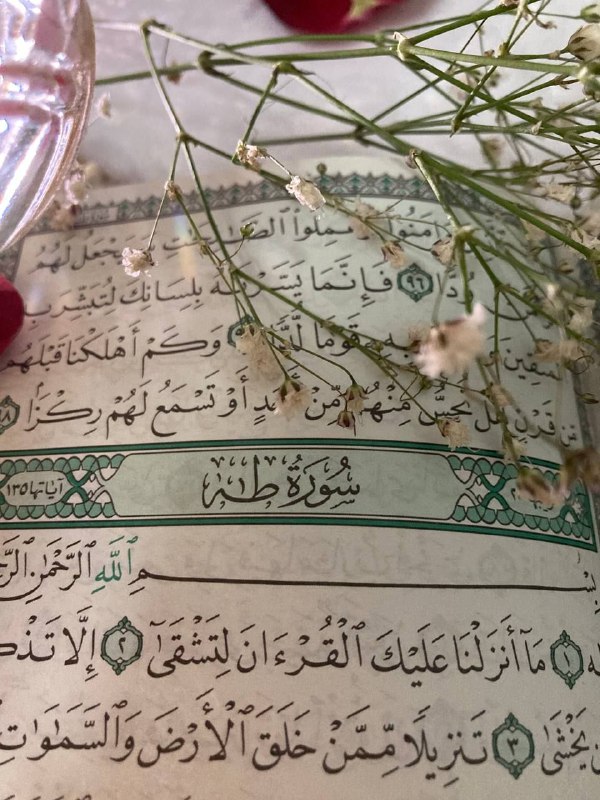 ءَامَنُوا۟ وَعَمِلُوا۟ ٱلصَّٰلِحَٰتِ سَيَجْعَلُ لَهُمُ
وُدًّا ٩٦ فَإِنَّمَا يَسَّرْنَٰهُ بِلِسَانِكَ لِتُبَشِّرَ بِ
بِهِۦ قَوْمًا لُّدًّا وَكَمْ أَهْلَكْنَا قَبْلَهُم
مِّن قَرْنٍ هَلْ تُحِسُّ مِنْهُم مِّنْ أَحَدٍ أَوْ تَسْمَعُ لَهُمْ رِكْزًا ٩٨
سُورَةُ طه آياتها ١٣٥
بِسْمِ ٱللَّهِ ٱلرَّحْمَٰنِ
١ مَآ أَنزَلْنَا عَلَيْكَ ٱلْقُرْءَانَ لِتَشْقَىٰٓ ٢ إِلَّا تَذْكِ
يَخْشَىٰ ٣ تَنزِيلًا مِّمَّنْ خَلَقَ ٱلْأَرْضَ وَٱلسَّمَٰوَٰتِ